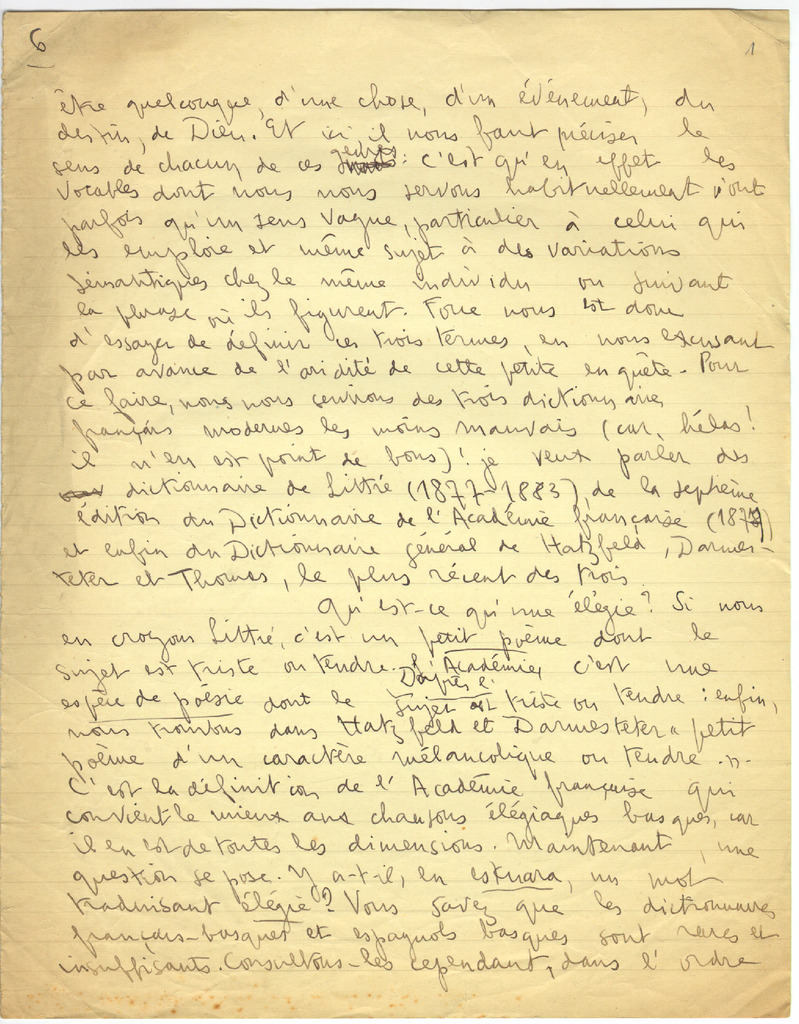 6
1
être quelconque, d'une chose, d'un événement, du
destin, de Dieu. Et ici il nous faut préciser le
genres
sens de chacun de ces : c'est qu'en effet les
vocables dont nous nous servons habituellement n'ont
parfois qu'un sens vague, particulier à celui qui
les emploie et même sujet à des variations
sémantiques chez le même individu ou suivant
la phrase où ils figurent. Force nous est donc
d'essayer de définir ces trois termes, en nous excusant
par avance de l'aridité de cette petite enquête. Pour
ce faire, nous nous servirons des trois dictionnaires
français modernes les moins mauvais (car, hélas!
il n'en est point de bons)! je veux parler des
dictionnaire de Littré (1877-1883), de la septième
édition du Dictionnaire de l'Académie française (187)
et enfin du Dictionnaire général de Hatzfeld, Darmes-
teter et Thomas, le plus récent des trois.
Qu'est-ce qu'une élégie? Si nous
en croyons Littré, c'est un petit poème dont le
sujet est triste ou tendre. D'après l'Académie, c'est une
espèce de poésie dont le sujet est triste ou tendre : enfin,
nous trouvons dans Hatzfeld et Darmesteter « petit
poème d'un caractère mélancolique ou tendre ».-
C'est la définition de l'Académie française qui
convient le mieux aux chansons élégiaques basques, car
il en est de toutes les dimensions. Maintenant, une
question se pose. Y a-t-il, en eskuara, un mot
traduisant élégie? Vous savez que les dictionnaires
français-basques et espagnols basques sont rares et
insuffisants. Consultons-les cependant, dans l'ordre